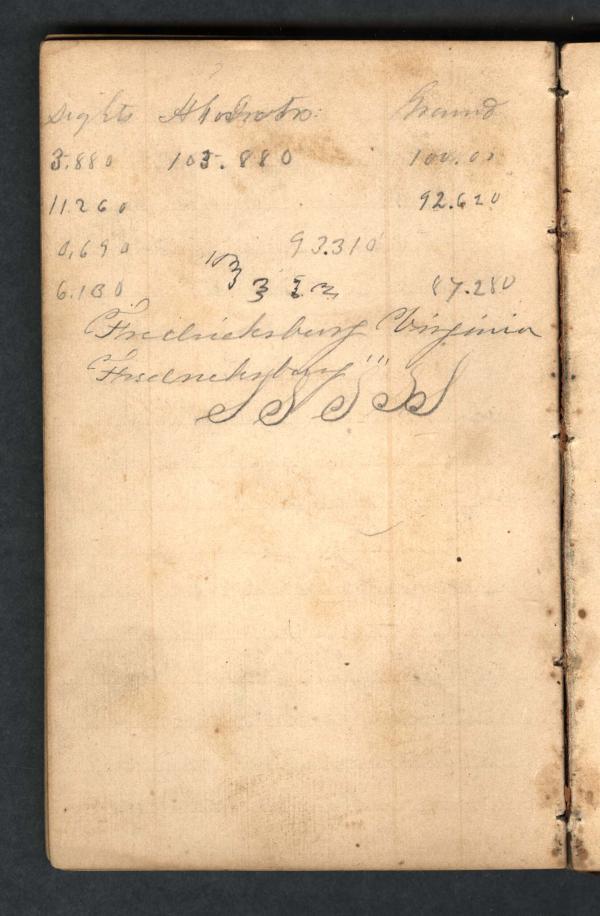 Sights Ground
3.880 103.880 100.00
11.260 92.620
0,690 93.310
6.130 87.280
Fredricksburg Virginia
Fredricksburg "
S S S S S